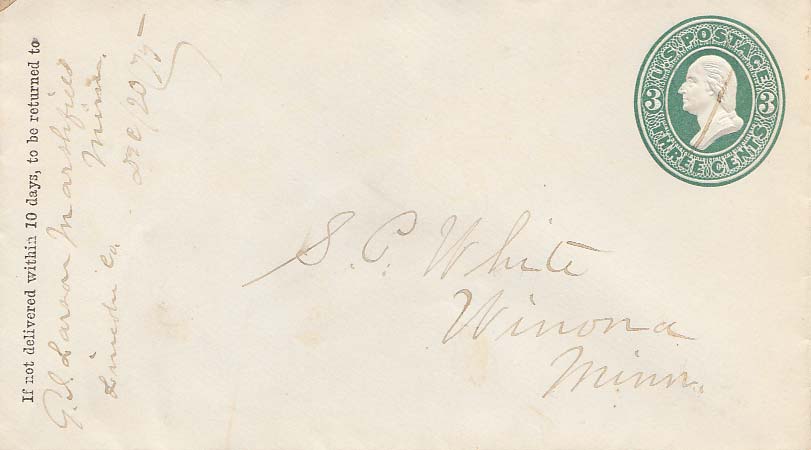 If not delivered within 10 days, to be returned to
Larson Marshfield
Lincoln Co. Minn.
Dec/20
U.S. POSTAGE
3 3
THREE CENTS
S. P. White
Winona
Minn.